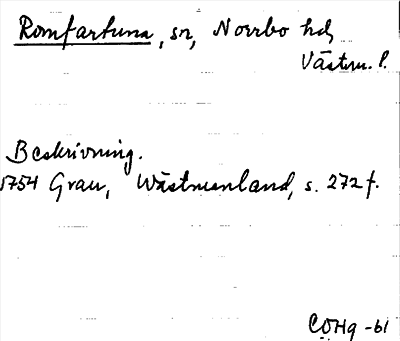 Romfartuna, sn, Norrbo hd,
Västm. l.
Beskrivning.
1754 Grau, Wästmanland, s. 272 f.
COHq -61